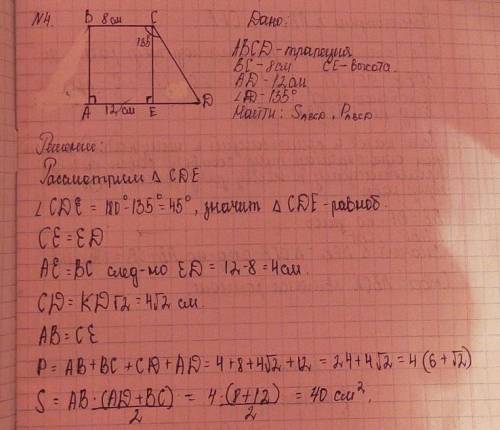 N4.
B 8 см C
135°
A 12 см E D
Дано:
ABCD - трапеция
BC - 8 см CE - высота.
AD - 12 см
= 135°
Найти: S ABCD, P ABCD
Решение:
Расмотрим △ CDE
∠CDE = 180° - 135° = 45°, значит △ CDE - равноб.
CE = ED
AE = BC след-но ED = 12 - 8 = 4 см.
CD = KD√2 = 4√2 см.
AB = CE
P = AB + BC + CD + AD = 4 + 8 + 4√2 + 12 = 24 + 4√2 = 4(6 + √2)
S = AB · (AD + BC) / 2 = 4 · (8 + 12) / 2 = 40 см².